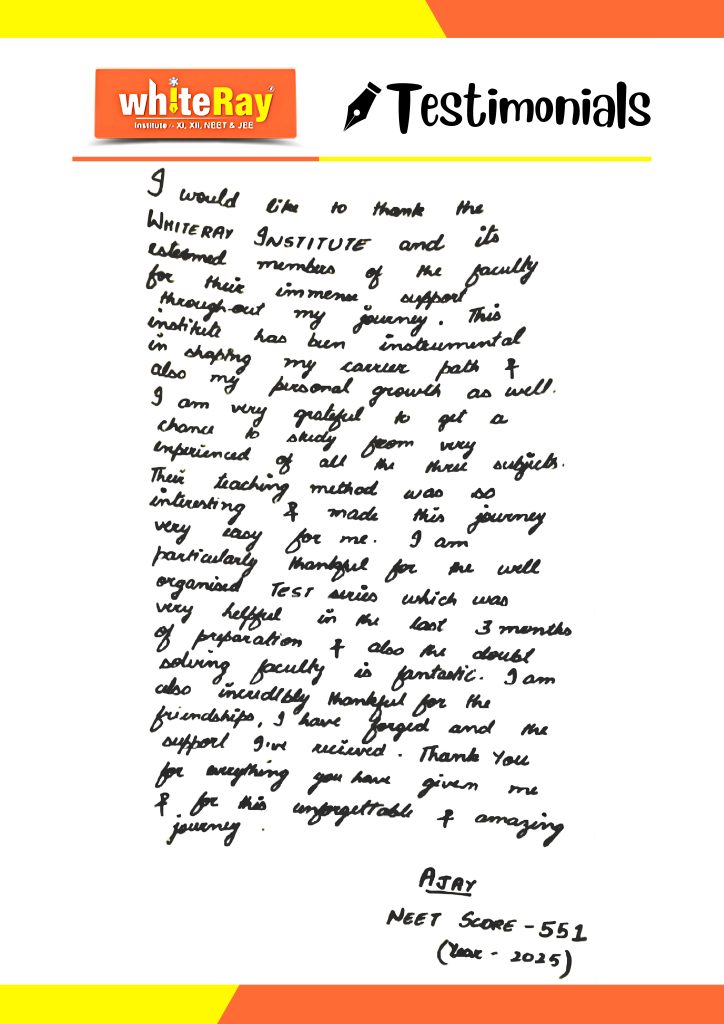 whiteRay
Institute :- XI, XII, NEET & JEE
Testimonials
I would like to thank the
WHITERAY INSTITUTE and its
esteemed members of the faculty
for their immense support
throughout my journey. This
institute has been instrumental
in shaping my carrier path &
also my personal growth as well.
I am very grateful to get a
chance to study from very
experienced of all the three subjects.
Their teaching method was so
interesting & made this journey
very easy for me. I am
particularly thankful for the well
organised TEST series which was
very helpful in the last 3 months
of preparation & also the doubt
solving faculty is fantastic. I am
also incredibly thankful for the
friendships, I have forged and the
support I've recieved. Thank You
for everything you have given me
& for this unforgettable & amazing
journey.
AJAY
NEET SCORE - 551
(Year - 2025)